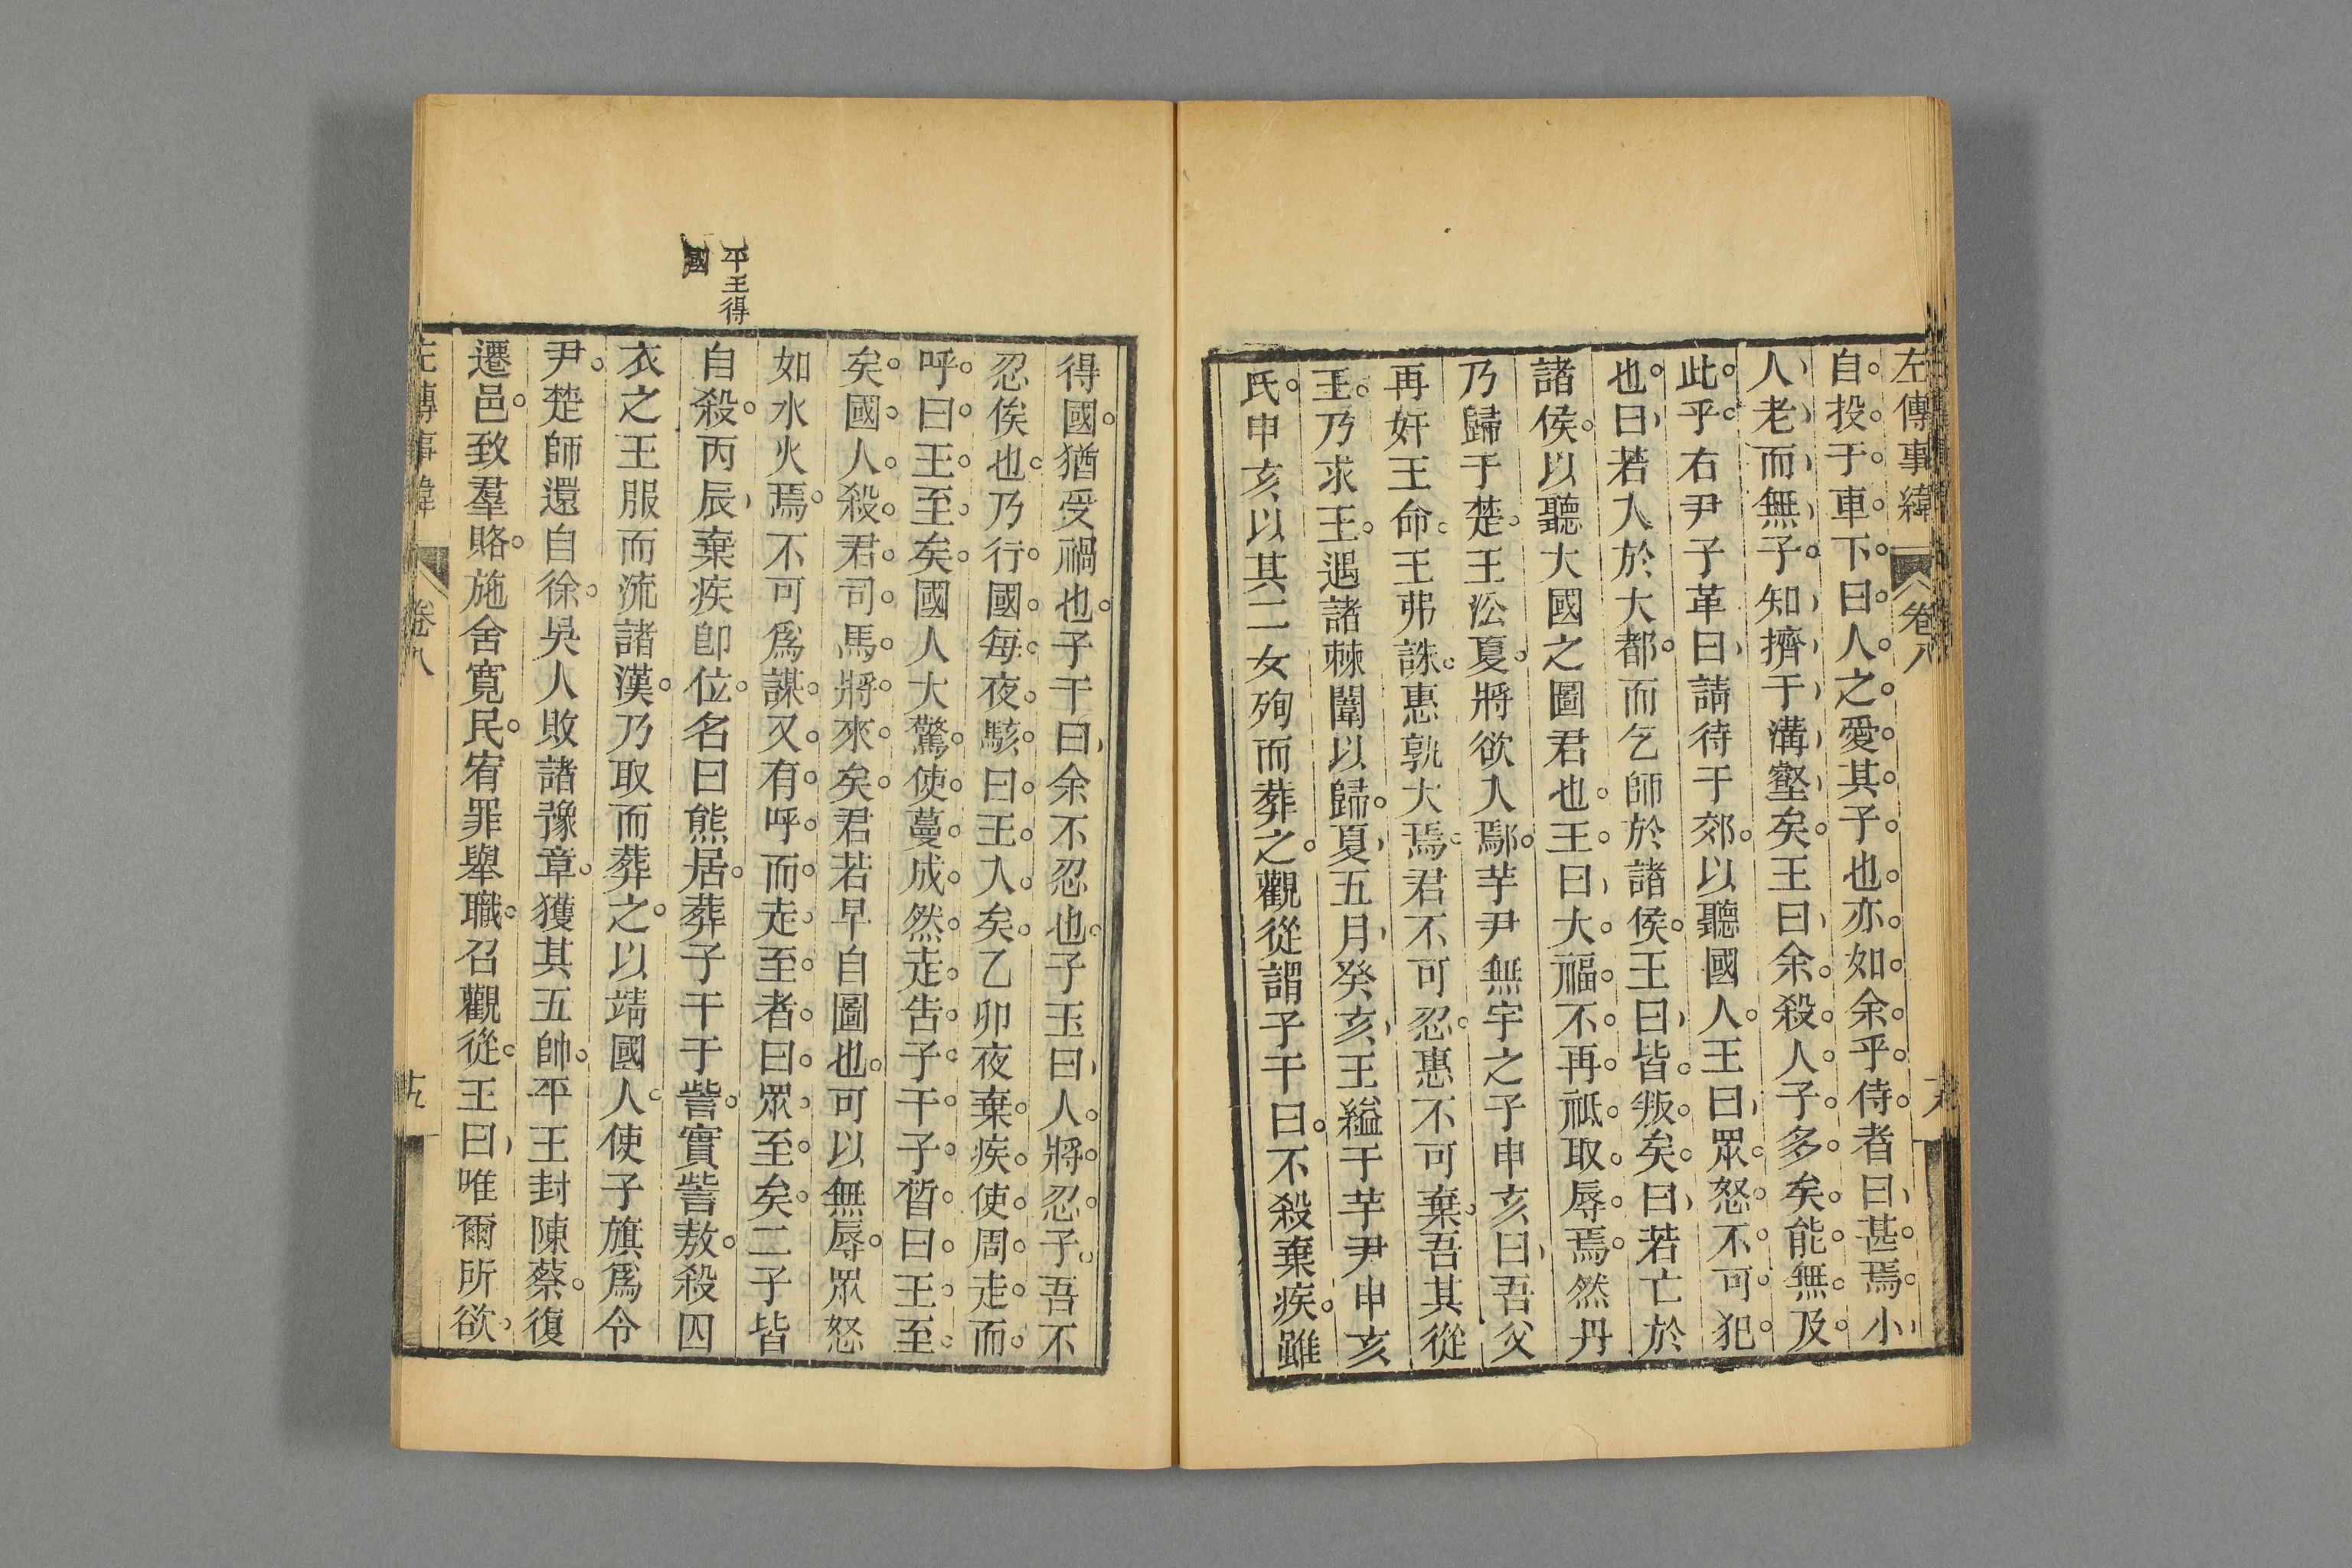 左傳事緯 卷八
自投于車下曰人之愛其子也亦如余乎侍者曰甚焉小
人老而無子知擠于溝壑矣王曰余殺人子多矣能無及
此乎右尹子革曰請待于郊以聽國人王曰眾怒不可犯
也曰若入於大都而乞師於諸侯王曰皆叛矣曰若亡於
諸侯以聽大國之圖君也王曰大福不再祗取辱焉然丹
乃歸于楚王沿夏將欲入鄢芋尹無宇之子申亥曰吾父
再奸王命王弗誅惠孰大焉君不可忍惠不可棄吾其從
王乃求王遇諸棘闈以歸夏五月癸亥王縊于芋尹申亥
氏申亥以其二女殉而葬之觀從謂子干曰不殺棄疾雖
得國猶受禍也子干曰余不忍也子玉曰人將忍子吾不
忍俟也乃行國每夜駭曰王入矣乙卯夜棄疾使周走而
呼曰王至矣國人大驚使蔓成然走告子干子皙曰王至
矣國人殺君司馬將來矣君若早自圖也可以無辱眾怒
如水火焉不可爲謀又有呼而走至者曰眾至矣二子皆
平王得國
自殺丙辰棄疾卽位名曰熊居葬子干于訾實訾敖殺囚
衣之王服而流諸漢乃取而葬之以靖國人使子旗爲令
尹楚師還自徐吳人敗諸豫章獲其五帥平王封陳蔡復
遷邑致羣賂施舍寬民宥罪舉職召觀從王曰唯爾所欲
左傳事緯 卷八